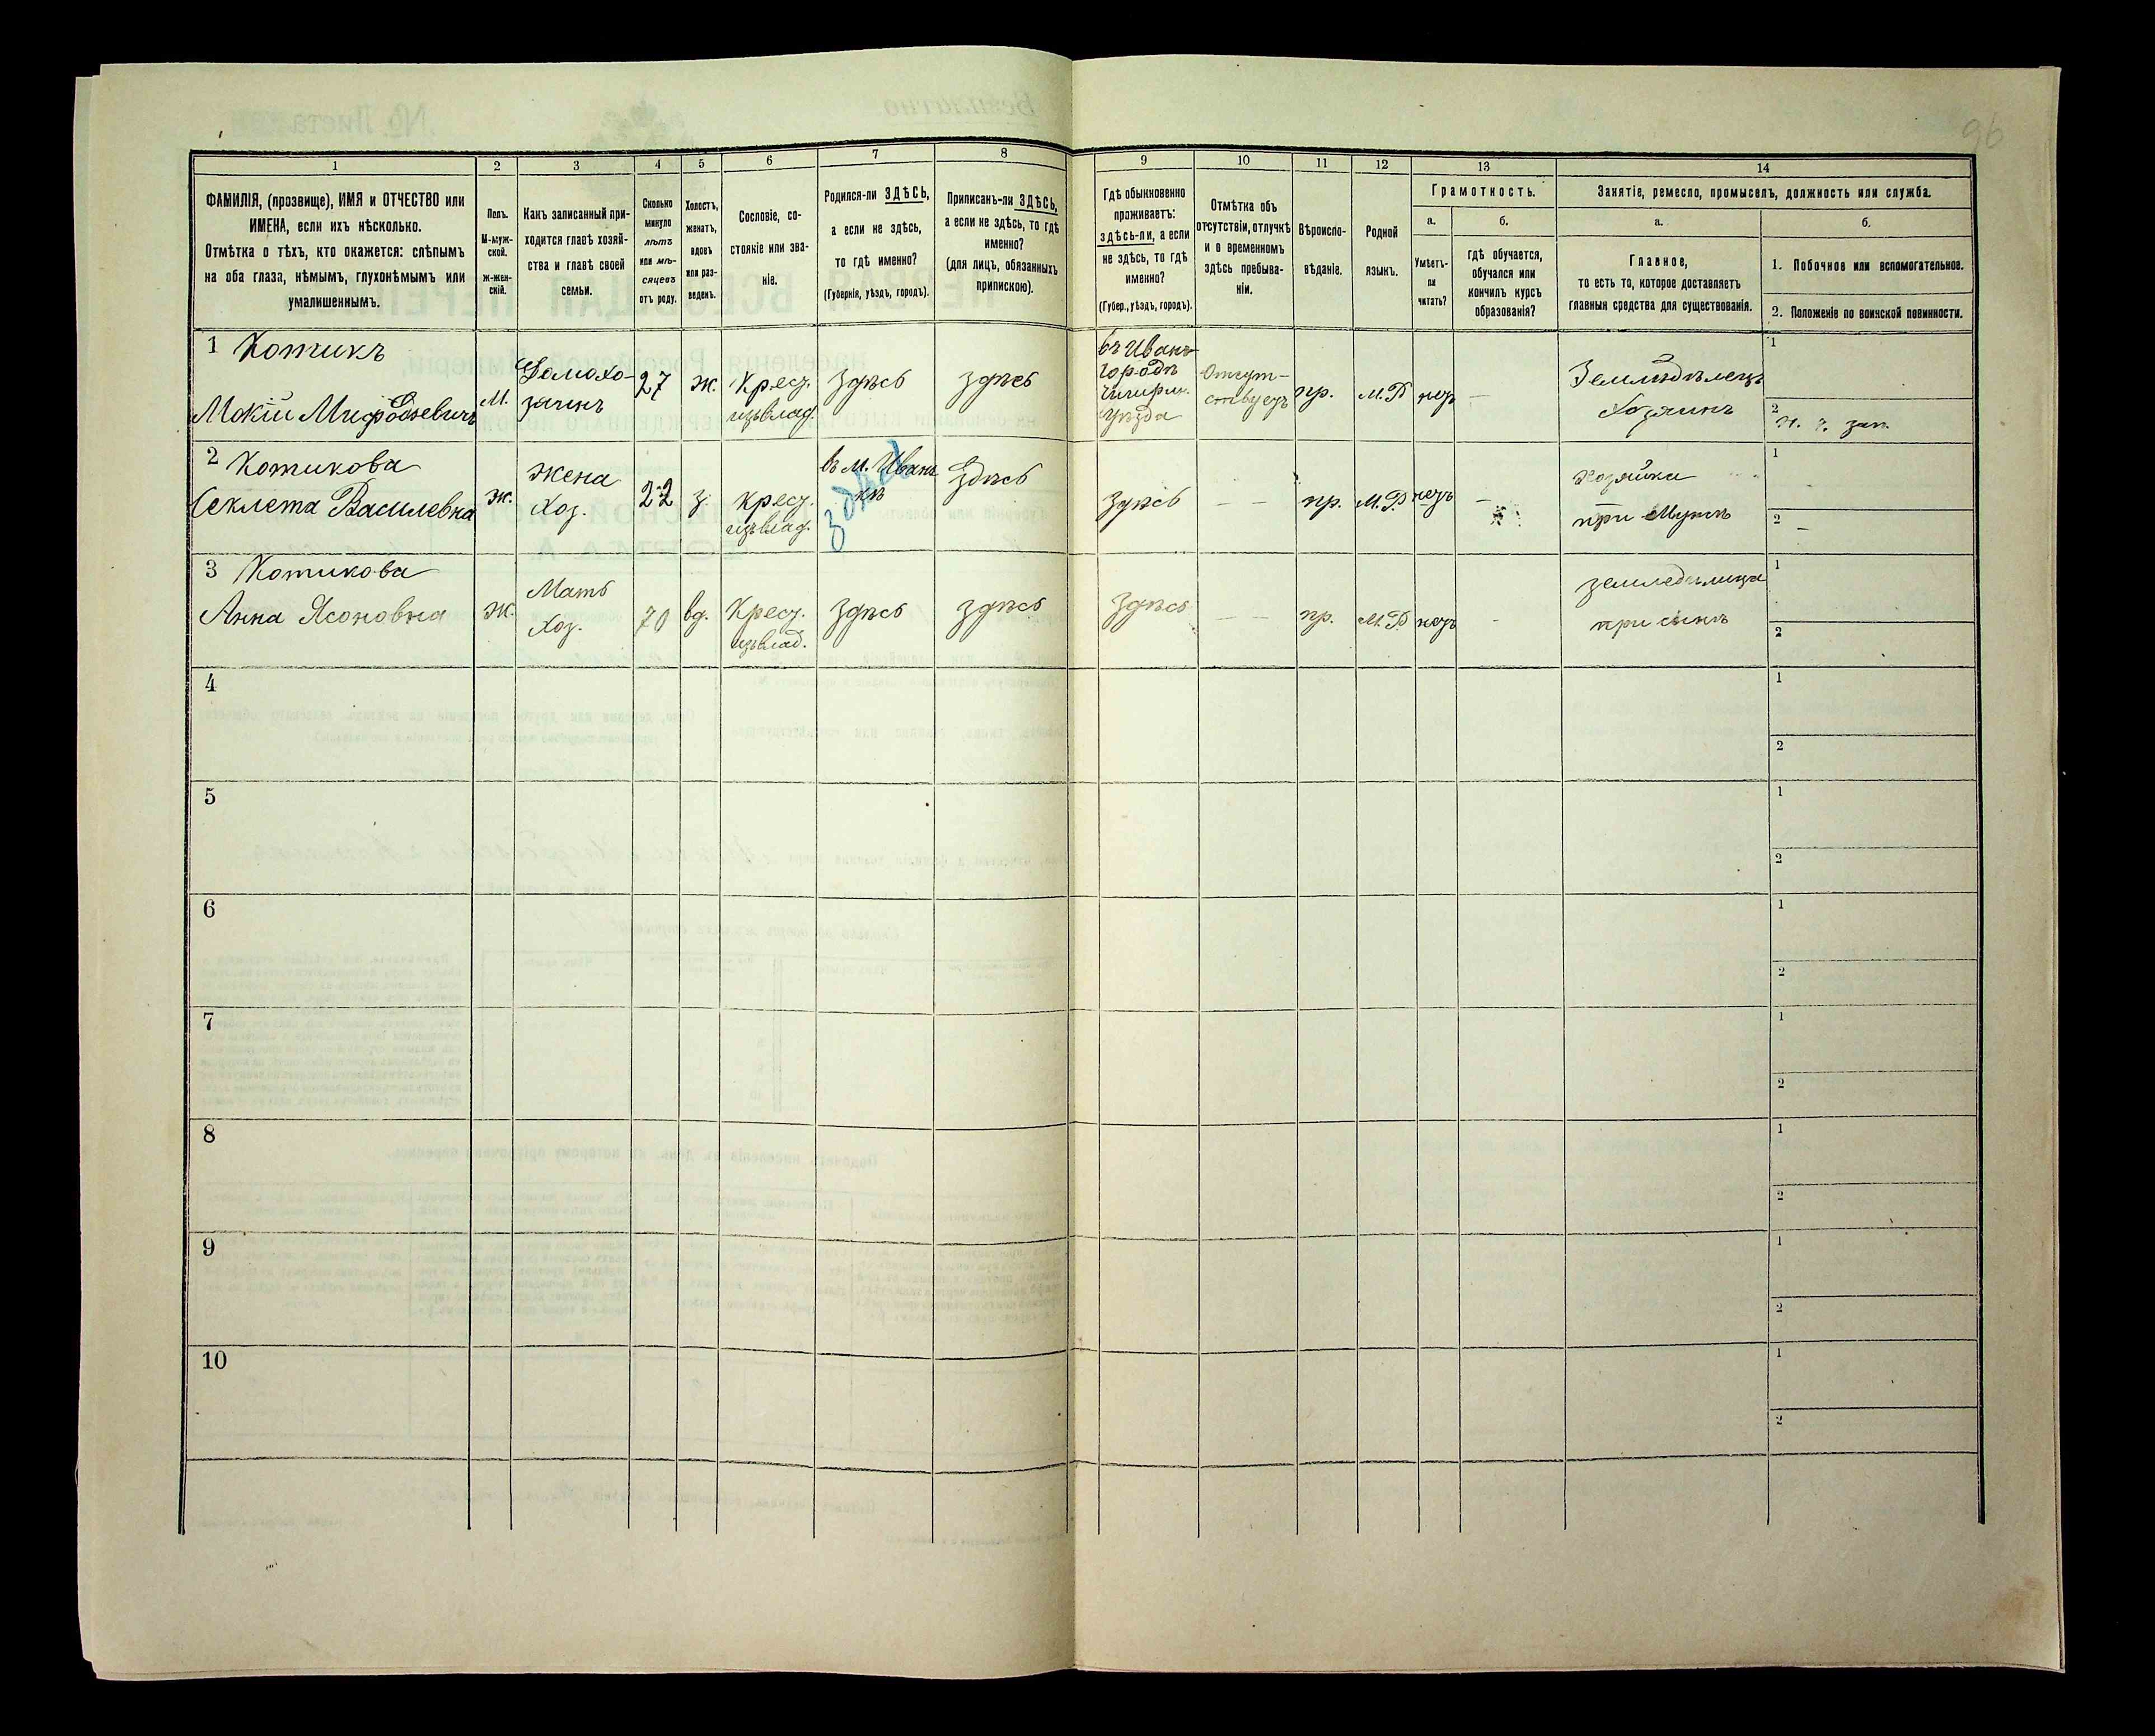 96
1
2
3
4
5
6
7
8
9
10
11
12
13
14
ФАМИЛІЯ, (прозвище), ИМЯ и ОТЧЕСТВО или
ИМЕНА, если ихъ нѣсколько.
Отмѣтка о тѣхъ, кто окажется: слѣпымъ
на оба глаза, нѣмымъ, глухонѣмымъ или
умалишеннымъ.
Полъ.
М-муж-
ской.
ж-жен-
скій.
Какъ записанный при-
ходится главѣ хозяй-
ства и главѣ своей
семьи.
Сколько
минуло
лѣтъ
или мѣ-
сяцевъ
отъ роду.
Холостъ,
женатъ,
вдовъ
или раз-
веденъ.
Сословіе, со-
стояніе или зва-
ніе.
Родился-ли ЗДѢСЬ,
а если не здѣсь,
то гдѣ именно?
(Губернія, уѣздъ, городъ).
Приписанъ-ли ЗДѢСЬ,
а если не здѣсь, то гдѣ
именно?
(для лицъ, обязанныхъ
припискою).
Гдѣ обыкновенно
проживаетъ:
здѣсь-ли, а если
не здѣсь, то гдѣ
именно?
(Губер., уѣздъ, городъ).
Отмѣтка объ
отсутствіи, отлучкѣ
и о временномъ
здѣсь пребыва-
ніи.
Вѣроиспо-
вѣданіе.
Родной
языкъ.
Грамотность.
а.
Умѣетъ-
ли
читать?
б.
гдѣ обучается,
обучался или
кончилъ курсъ
образованія?
Занятіе, ремесло, промыселъ, должность или служба.
а.
Главное,
то есть то, которое доставляетъ
главныя средства для существованія.
б.
1. Побочное или вспомогательное.
2. Положеніе по воинской повинности.
1 Котикъ
Мокій Мифодіевичъ
М.
Домохо-
зяинъ
27
ж.
Крес.
изъвлад.
Здѣсь
здѣсь
въ Иванъ-
городѣ
Чигирин.
уѣзда
Отсут-
ствуетъ
пр.
М.Р
нетъ
—
Земледѣлецъ
Хозяинъ
1
2
2 Котикова
Секлета Василевна
ж.
жена
Хоз.
22
з.
Крес.
изъвлад.
въ м. Иван
кѣ
здѣсь
Здѣсь
Здѣсь
— —
пр.
М.Р.
нетъ
—
Хозяйка
при Мужѣ
1
2 —
3 Котикова
Анна Ясоновна
ж.
Мать
Хоз.
70
вд.
Крес.
изъвлад.
Здѣсь
здѣсь
Здѣсь
— —
пр.
М.Р
нетъ
-
земледѣлица
при сынѣ
1
2
4
1
2
5
1
2
6
1
2
7
1
2
8
1
2
9
1
2
10
1
2